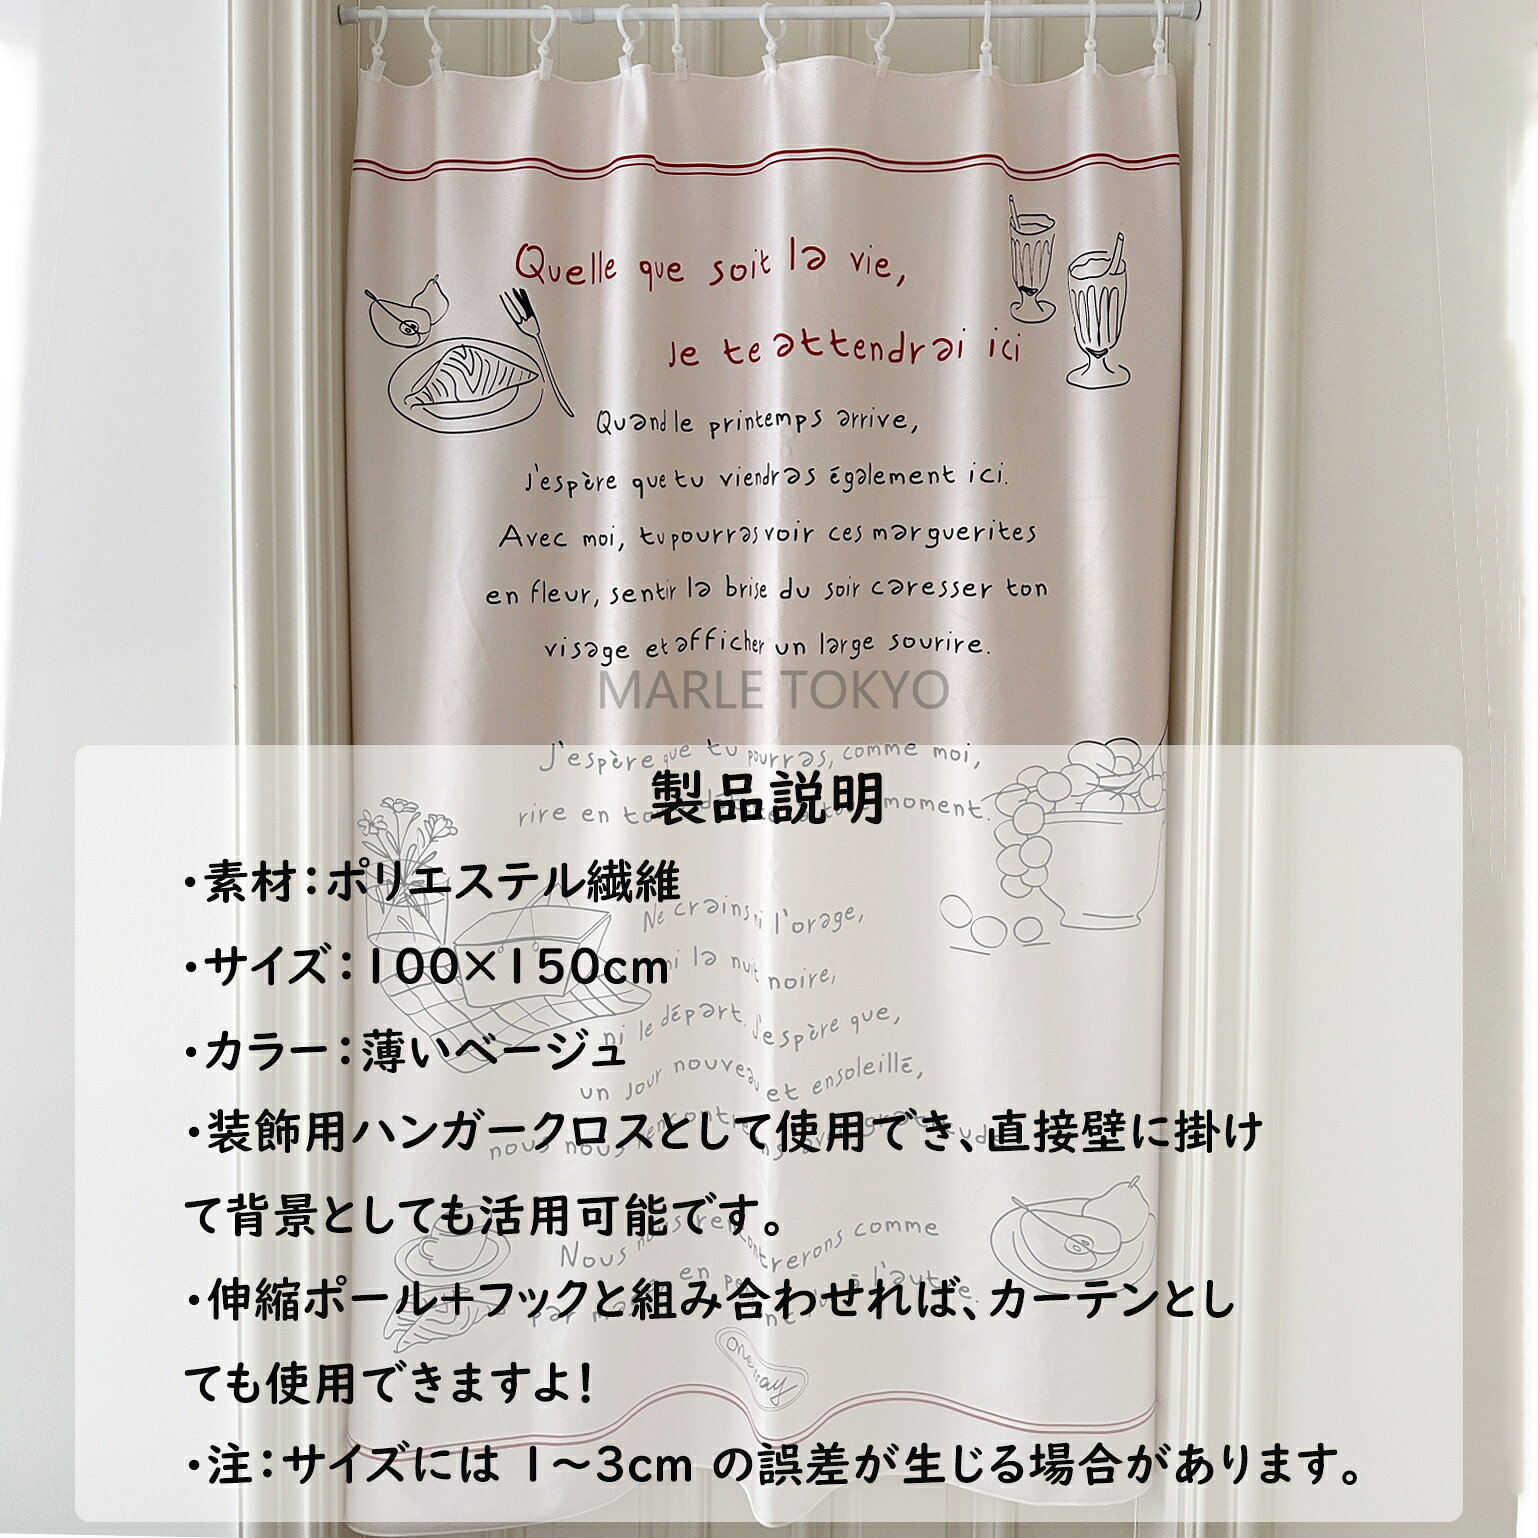 Quelle que soit la vie,
Je te attendrai ici
Quand le printemps arrive,
J'espère que tu viendras également ici.
Avec moi, tu pourras voir ces marguerites
en fleur, sentir la brise du soir caresser ton
visage et afficher un large sourire.
MARLE TOKYO
J'espère que tu pourras, comme moi,
rire en moment.
製品説明
・素材：ポリエステル繊維
Ne crains ni l'orage,
ni la nuit noire,
・サイズ：100×150cm
ni le départ. J'espère que,
・カラー：薄いベージュ
un jour nouveau et ensoleillé,
・装飾用ハンガークロスとして使用でき、直接壁に掛け
nous nous
て背景としても活用可能です。
Nous nous rencontrerons comme
par en à l'autre.
・伸縮ポール＋フックと組み合わせれば、カーテンとし
ても使用できますよ！
One way
・注：サイズには 1～3cm の誤差が生じる場合があります。